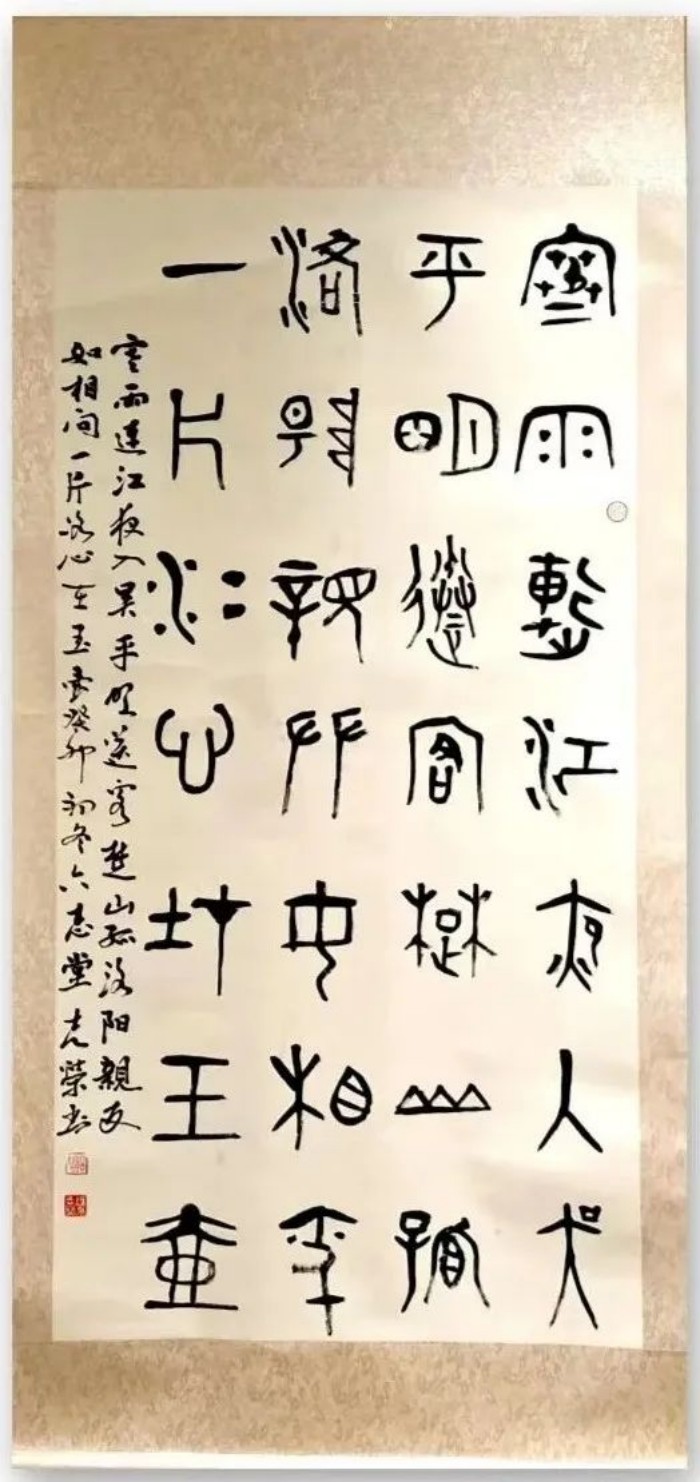 寒雨連江夜入吳
平明送客楚山孤
洛陽親友如相問
一片冰心在玉壺
寒雨连江夜入吴平明送客楚山孤洛阳親友
如相问一片冰心在玉壶癸卯初冬六志堂克榮书